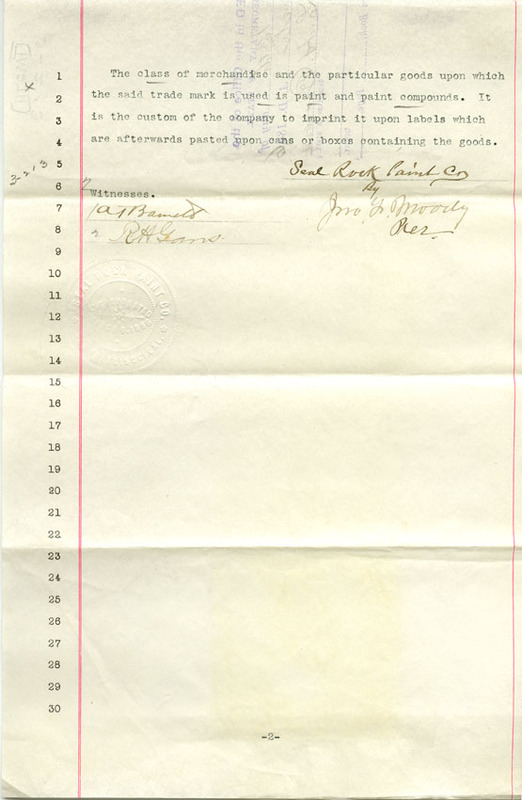 1 The class of merchandise and the particular goods upon which
2 the said trade mark is used is paint and paint compounds. It
3 is the custom of the company to imprint it upon labels which
4 are afterwards pasted upon cans or boxes containing the goods.
5 Seal Rock Paint Co
By
6 Witnesses.
7 Jno. L. Moody
8 R H Gans. Pres.
9
10
11
12
13
14
15
16
17
18
19
20
21
22
23
24
25
26
27
28
29
30
-2-